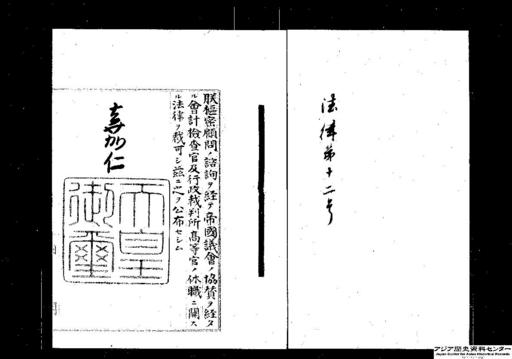 法律第十二号
朕樞密顧問ノ諮詢ヲ経テ帝國議會ノ協賛ヲ経タ
ル會計檢査官及行政裁判所高等官ノ休職ニ関ス
ル法律ヲ裁可シ茲ニ之ヲ公布セシム
嘉仁
天皇
御璽
アジア歴史資料センター
Japan Center for Asian Historical Records